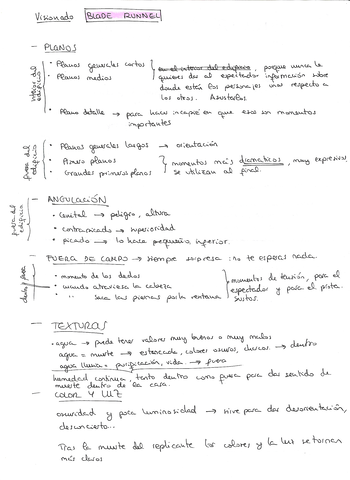 Visionado BLADE RUNNEL
- PLANOS
interior del edificio
• Planos generales cortos
• Planos medios
en el interior del edificio, porque nunca le
quieres dar al espectador información sobre
donde están los personajes uno respecto a
los otros. Asustarlos.
• Plano detalle → para hacer incapié en que esos son momentos
importantes
fuera del edificio
• Planos generales largos → orientación
• Primeros planos
• Grandes primeros planos
momentos más dramaticos, muy expresivos,
se utilizan al final.
fuera del edificio
- ANGULACIÓN
• Cenital → peligro, altura
• contrapicado → superioridad
• picado → lo hace pequeño, inferior.
- FUERA DE CAMPO → siempre sorpresa: no te esperas nada.
dentro y fuera
• momento de los dedos
• cuando atraviesa la cabeza
• " saca las piernas por la ventana
• momentos de tensión, para el
espectador y para el prota.
Sustos.
- TEXTURAS
• agua → puede tener valores muy buenos o muy malos
agua = muerte → estancada, colores oscuros, → dentro
agua lluvia = purificación, vida → fuera
humedad continua, tanto dentro como fuera para dar sentido de
muerte dentro de la casa.
- COLOR Y LUZ
oscuridad y poca luminosidad → sirve para dar desorientación,
desconcierto...
Tras la muerte del replicante los colores y la luz se tornan
más claros